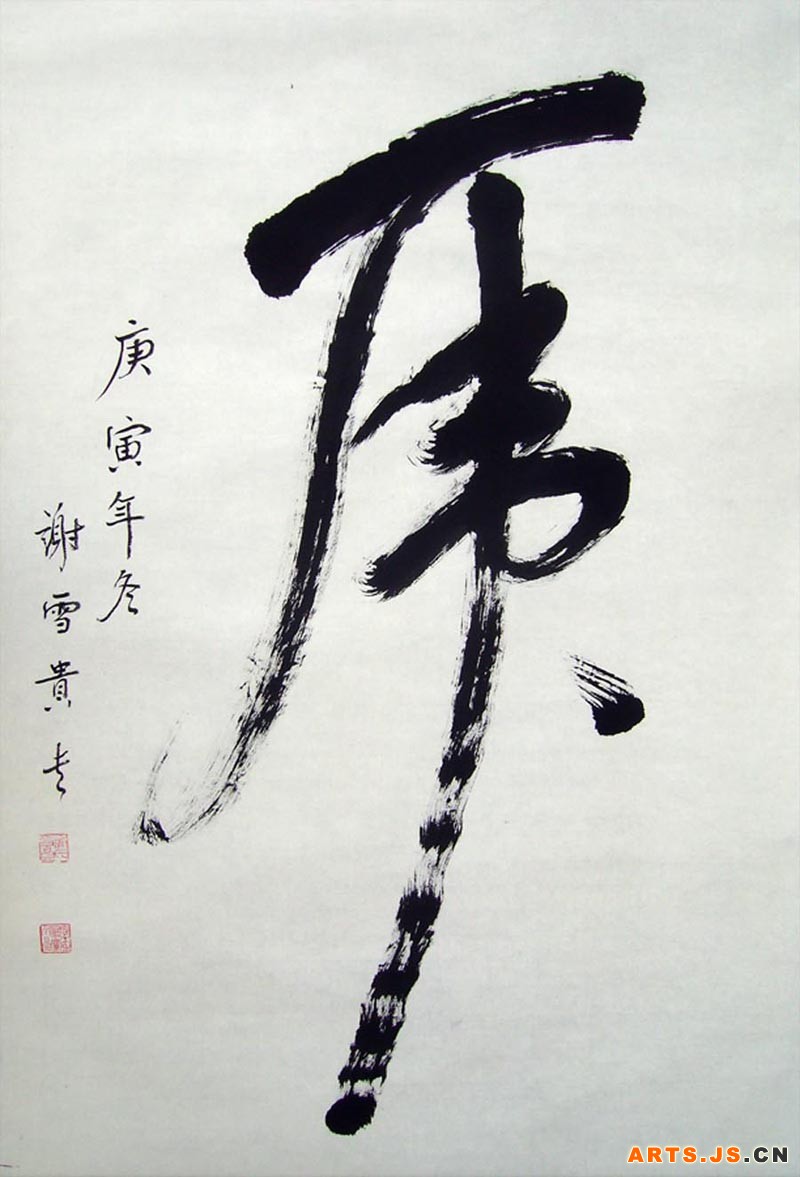 虎
庚寅年冬
謝雪貴书
ARTS.JS.CN